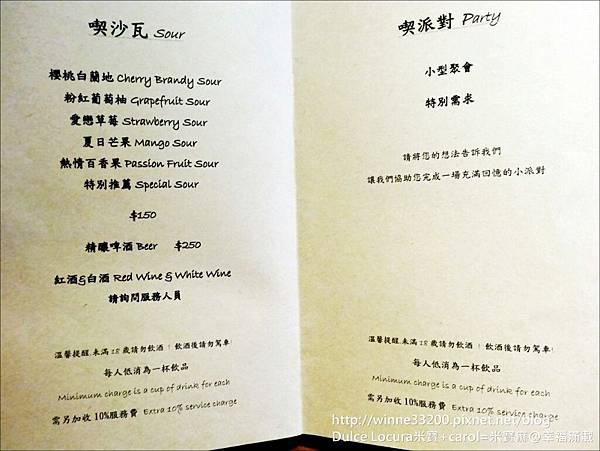 喫沙瓦 Sour
櫻桃白蘭地 Cherry Brandy Sour
粉紅葡萄柚 Grapefruit Sour
愛戀草莓 Strawberry Sour
夏日芒果 Mango Sour
熱情百香果 Passion Fruit Sour
特別推薦 Special Sour
$150
精釀啤酒 Beer $250
紅酒&白酒 Red Wine & White Wine
請詢問服務人員
溫馨提醒,未滿18歲請勿飲酒！飲酒後請勿駕車!
每人低消為一杯飲品
Minimum charge is a cup of drink for each
需另加收10%服務費 Extra 10% service charge
喫派對 Party
小型聚會
特別需求
請將您的想法告訴我們
讓我們協助您完成一場充滿回憶的小派對
溫馨提醒,未滿18歲請勿飲酒！飲酒後請勿駕車!
每人低消為一杯飲品
Minimum charge is a cup of drink for each
需另加收10%服務費 Extra 10% service charge
http://winne33200.pixnet.net/blog
Dulce Locura米寶+carol=米寶麻@幸福滿載